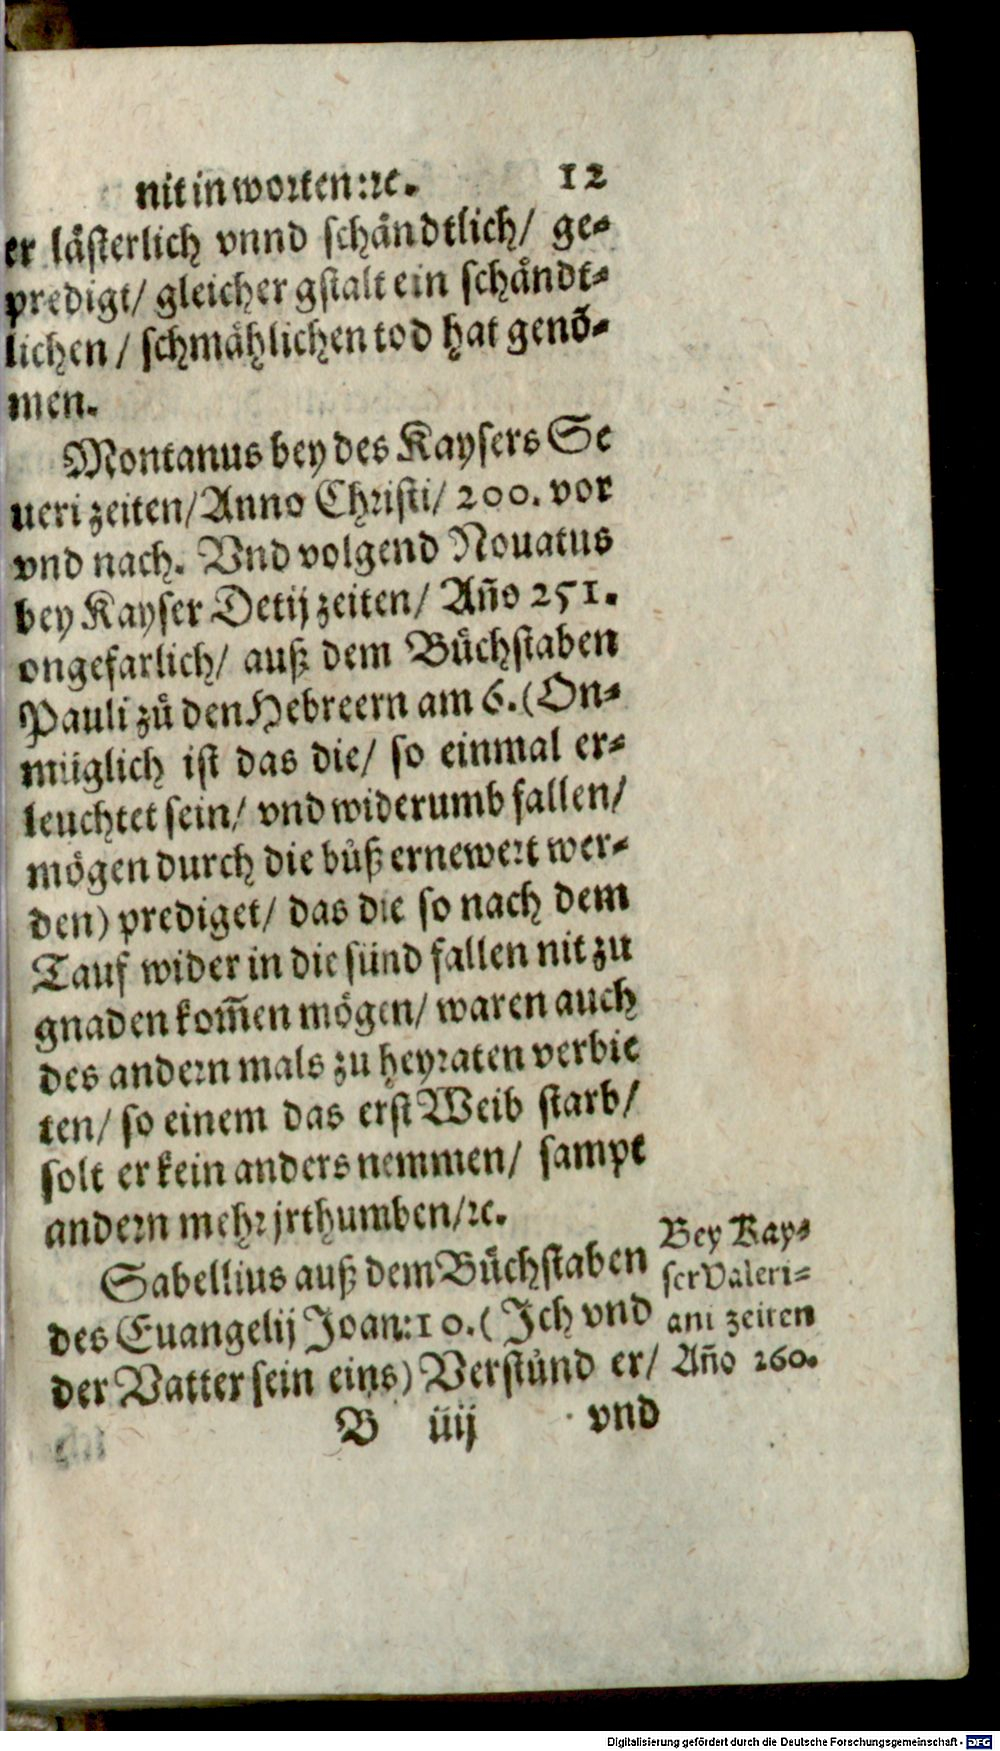 nit in worten: ꝛc. 12
er lästerlich vnnd schändtlich/ ge⸗
predigt/ gleicher gstalt ein schändt⸗
lichen / schmählichen tod hat genõ⸗
men.
Montanus bey des Kaysers Se
ueri zeiten/ Anno Christi/ 200. vor
vnd nach. Vnd volgend Nouatus
bey Kayser Detij zeiten/ Añо 251.
ongefarlich/ auß dem Bůchstaben
Pauli zů den Hebreern am 6. (On⸗
müglich ist das die/ so einmal er⸗
leuchtet sein/ vnd widerumb fallen/
mögen durch die bůß ernewert wer⸗
den) prediget/ das die so nach dem
Tauf wider in die sünd fallen nit zu
gnaden kom̃en mögen/ waren auch
des andern mals zu heyraten verbie
ten/ so einem das erst Weib starb/
solt er kein anders nemmen/ sampt
andern mehr jrthumben/ ꝛc.
Sabellius auß dem Bůchstaben
des Euangelij Joan: 10. (Ich vnd
der Vatter sein eins) Verstůnd er/
Bey Kay⸗
ser Valeri⸗
ani zeiten
Añо 260.
B iiij vnd
Digitalisierung gefördert durch die Deutsche Forschungsgemeinschaft - DFG